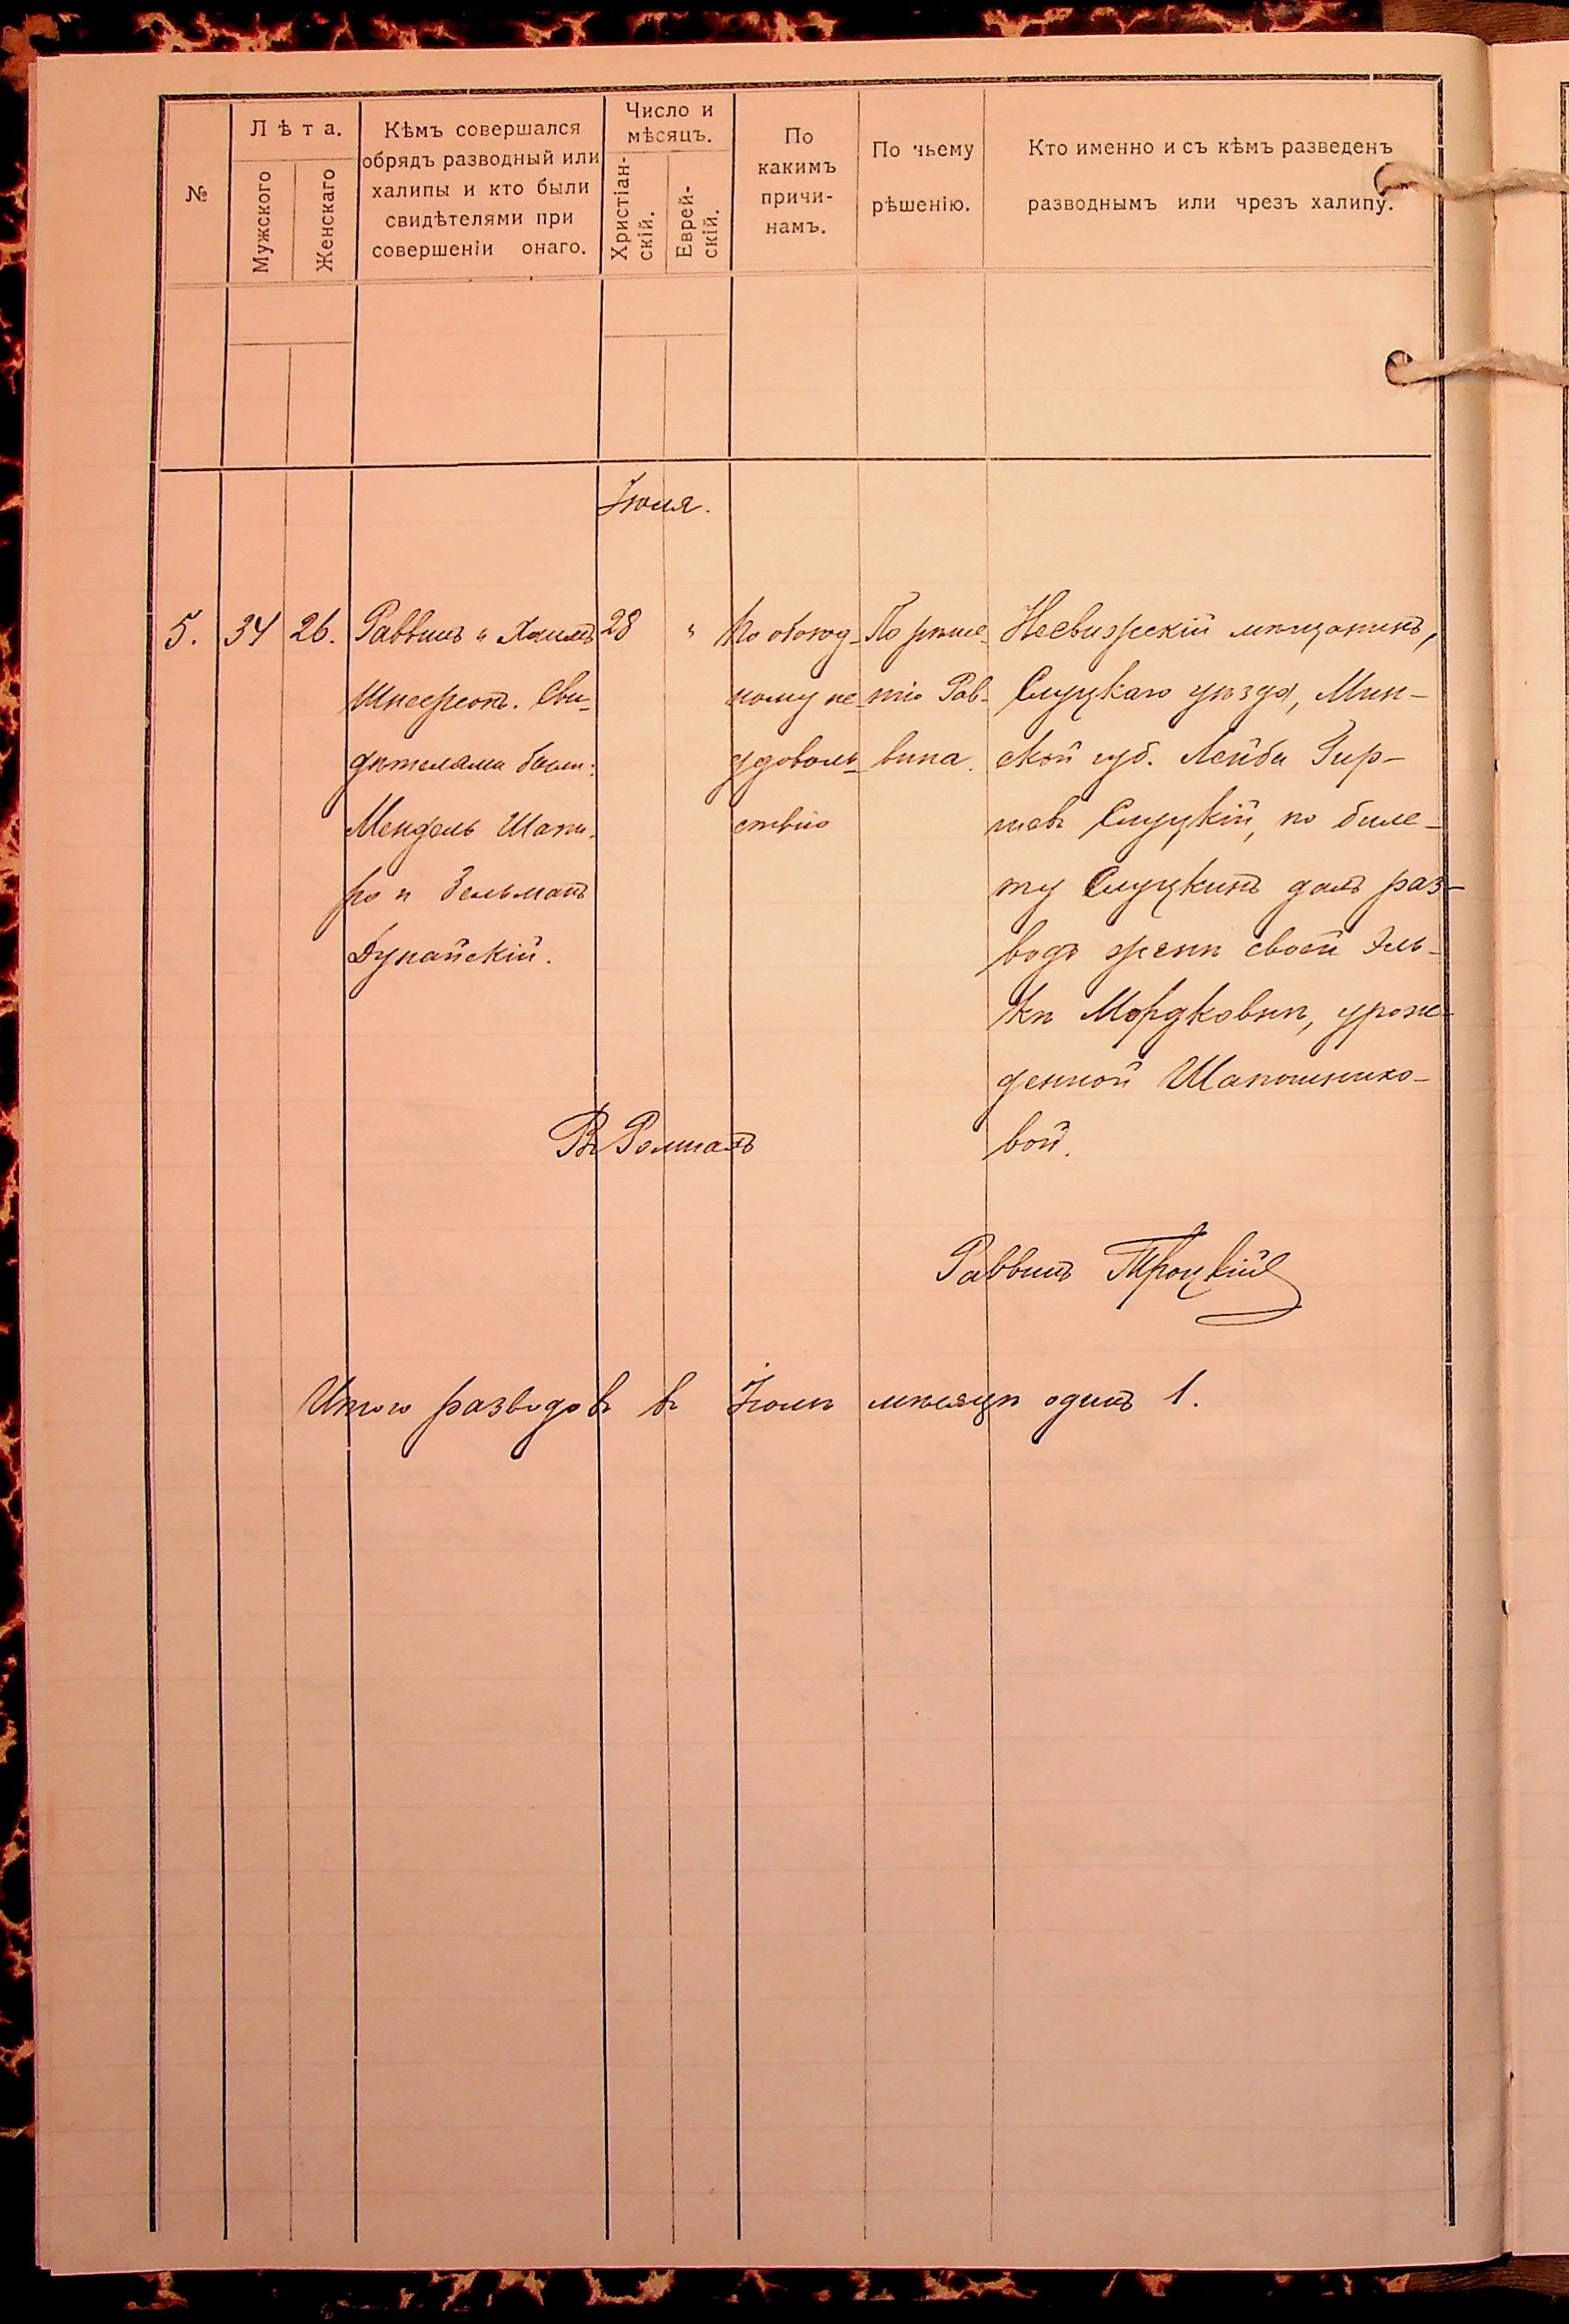 №
Лѣта.
Мужского
Женскаго
Кѣмъ совершался
обрядъ разводный или
халипы и кто были
свидѣтелями при
совершеніи онаго.
Число и
мѣсяцъ.
Христіан-
скій.
Еврей-
скій.
По
какимъ
причи-
намъ.
По чьему
рѣшенію.
Кто именно и съ кѣмъ разведенъ
разводнымъ или чрезъ халипу.
Іюля.
5.
34
26.
Раввинъ Хаимъ
Шнеерсонъ. Сви-
дѣтелями были:
Мендель Шапи-
ро и Зельманъ
Дунайскій.
28
"
По обоюд-
ному не-
удоволь-
ствію
По рѣше-
нію Рав-
вина.
Несвижскій мѣщанинъ,
Слуцкаго уѣзда, Мин-
ской губ. Лейба Гир-
шевъ Слуцкій, по биле-
ту Слуцкинъ далъ раз-
водъ женѣ своей Эль-
кѣ Мордковнѣ, урож-
денной Шапошнико-
вой.
Въ
Раввинъ Троцкій
Итого разводовъ въ Іюлѣ мѣсяцѣ одинъ 1.